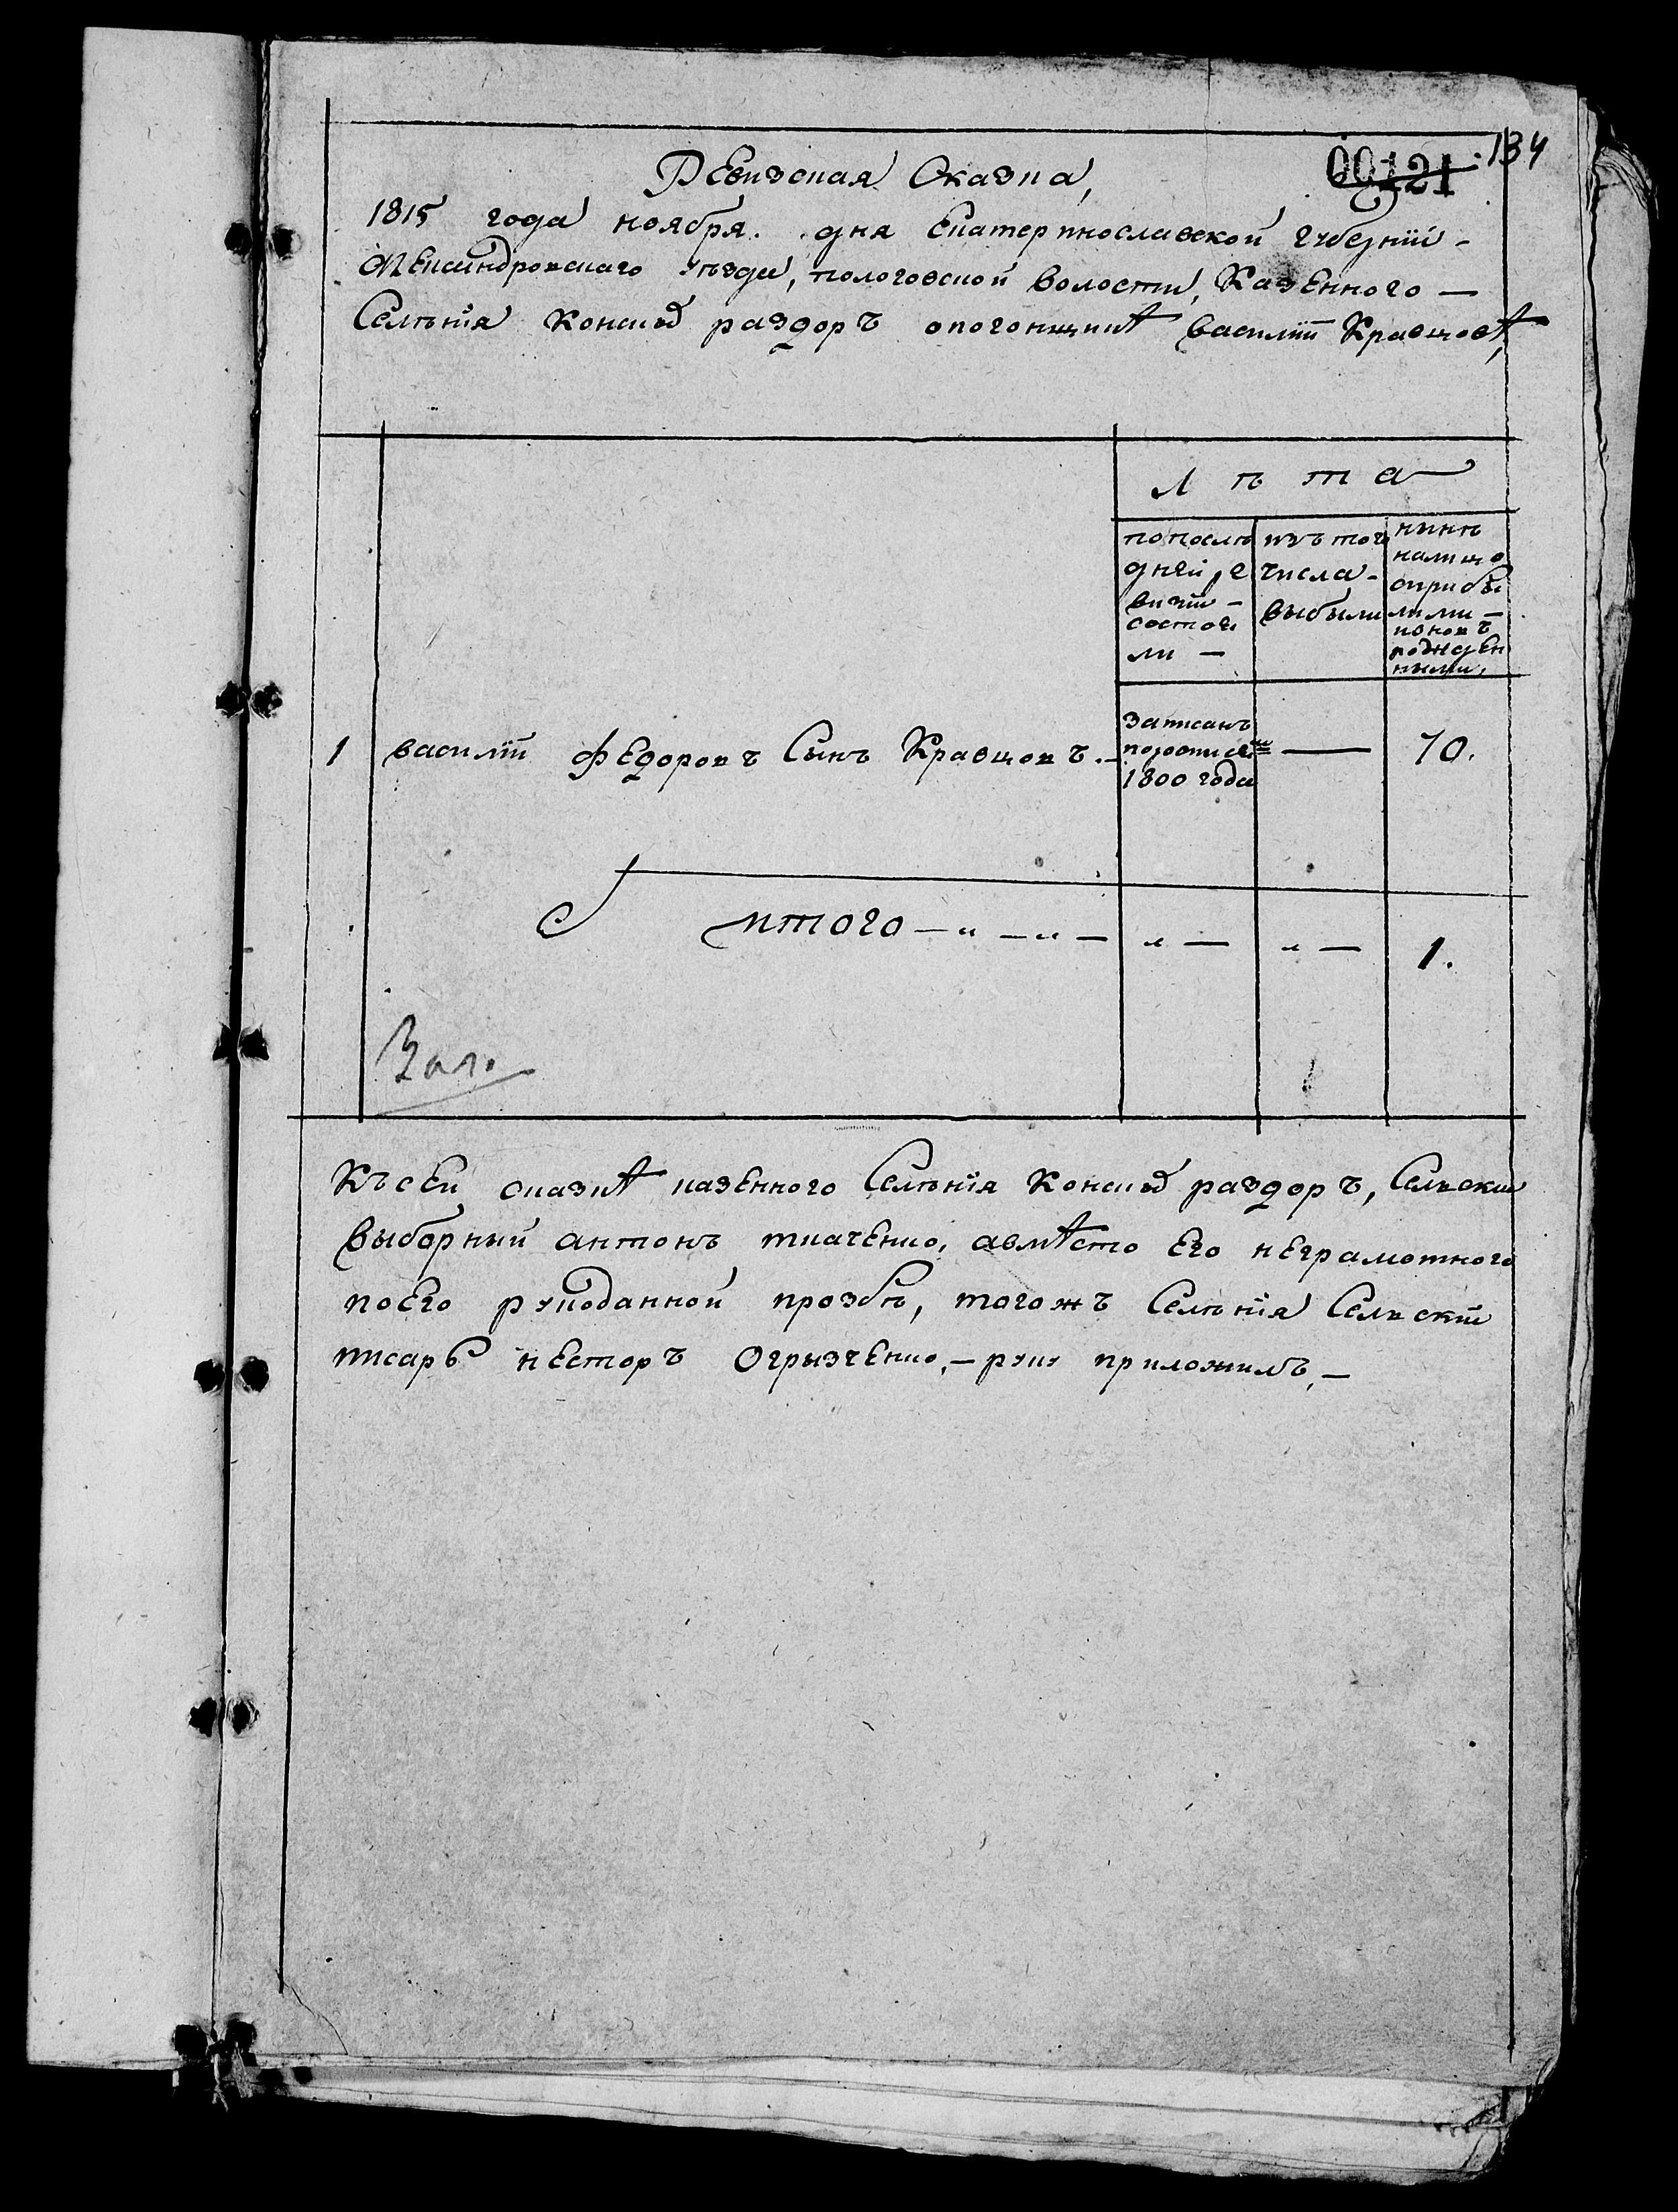 134
00121
Ревизская Сказка,
1815 года ноября. дня Екатеринославской губернїи -
Александровскаго уѣзда, пологовской волости, Казенного —
Селѣнїя Конскѣ раздоръ опогонщикѣ василїи Кравцовѣ,
лѣта
попослѣ
дней ре
визїи -
состоя
ли —
изъ того
числа -
выбыли
нынѣ
налицо
сприбы
лыми —
иновъ
рожден
ными,
1 василїи федоровъ Сынъ Кравцовъ. -
записанъ
поросписи
1800 года
— 70.
итого — „ — „ — „ — „ — 1.
Зал.
Къ сеи сказкѣ казенного Селѣнїя Конскѣ раздоръ, Селскии
выборный антонъ ткаченко, авмѣсто Его неграмотного
поего рукоданной прозбѣ, тогожъ Селѣнїя Селвскїи
писарь несторъ Огрызченко, — руку приложилъ, —